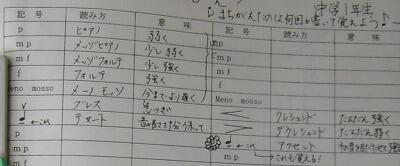 中学1年生
まちがえたのは何回か書いて覚えよう♪
記号 読み方 意味
p ピアノ 弱く
mp メッゾピアノ 少し弱く
mf メッゾフォルテ 少し強く
f フォルテ 強く
Meno mosso メーノ モッソ 今までより遅く
ブレス 息つぎ
←これ テヌート 音の長さを十分に保って
p
mp
mf
f
Meno mosso
記号 読み方 意味
p
mp
mf
f
Meno mosso
クレシェンド だんだん強く
デクレシェンド だんだん弱く
←これ アクセント
mp これも覚える!